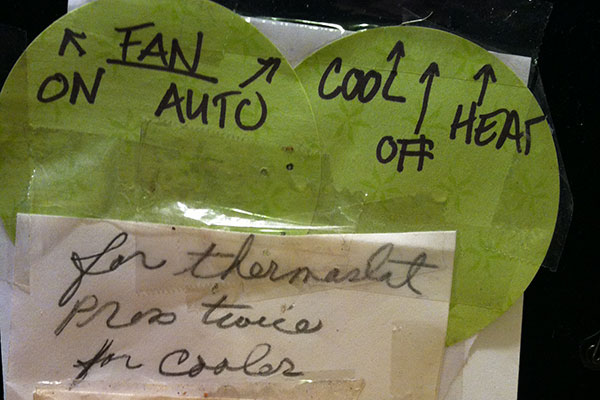 FAN
ON AUTO
COOL OFF HEAT
for thermostat
Press twice
for cooler